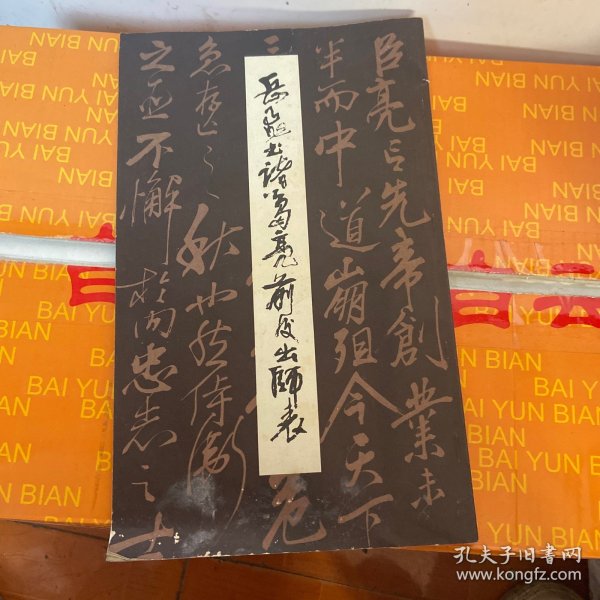 岳飞书诸葛亮前后出师表
臣亮言先帝創業未
半而中道崩殂今天下
三
危
急存亡之秋也然侍衛
之臣不懈於内忠志之士
BAI YUN BIAN
BAI YUN BIAN
BAI YUN BIAN
BAI YUN BIAN
BAI YUN BIAN
BAI YUN BIAN
BAI YUN BIAN
BAI YUN BIAN
孔夫子旧书网
www.kongfz.com